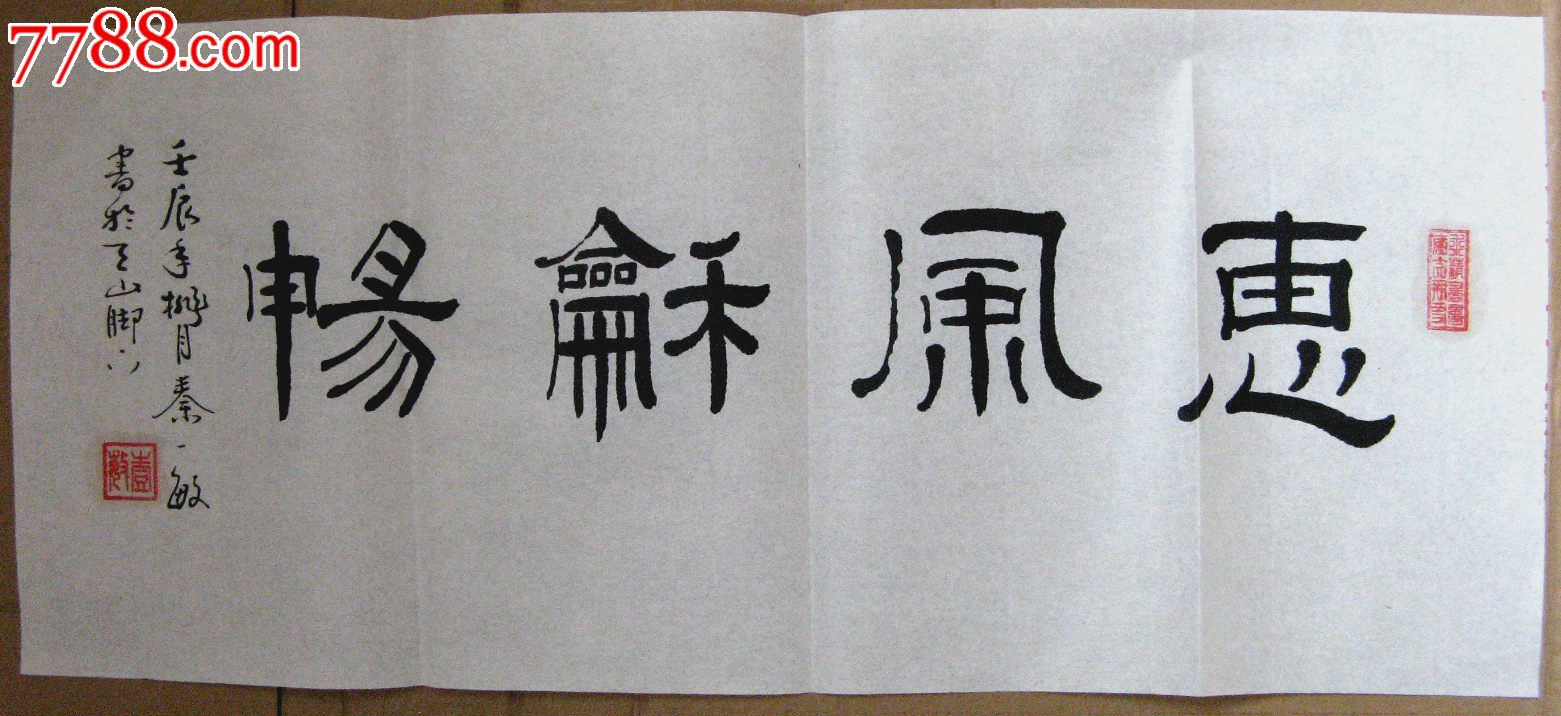 7788.com
惠風龢暢
壬辰年桃月秦一敏
書於天山脚下